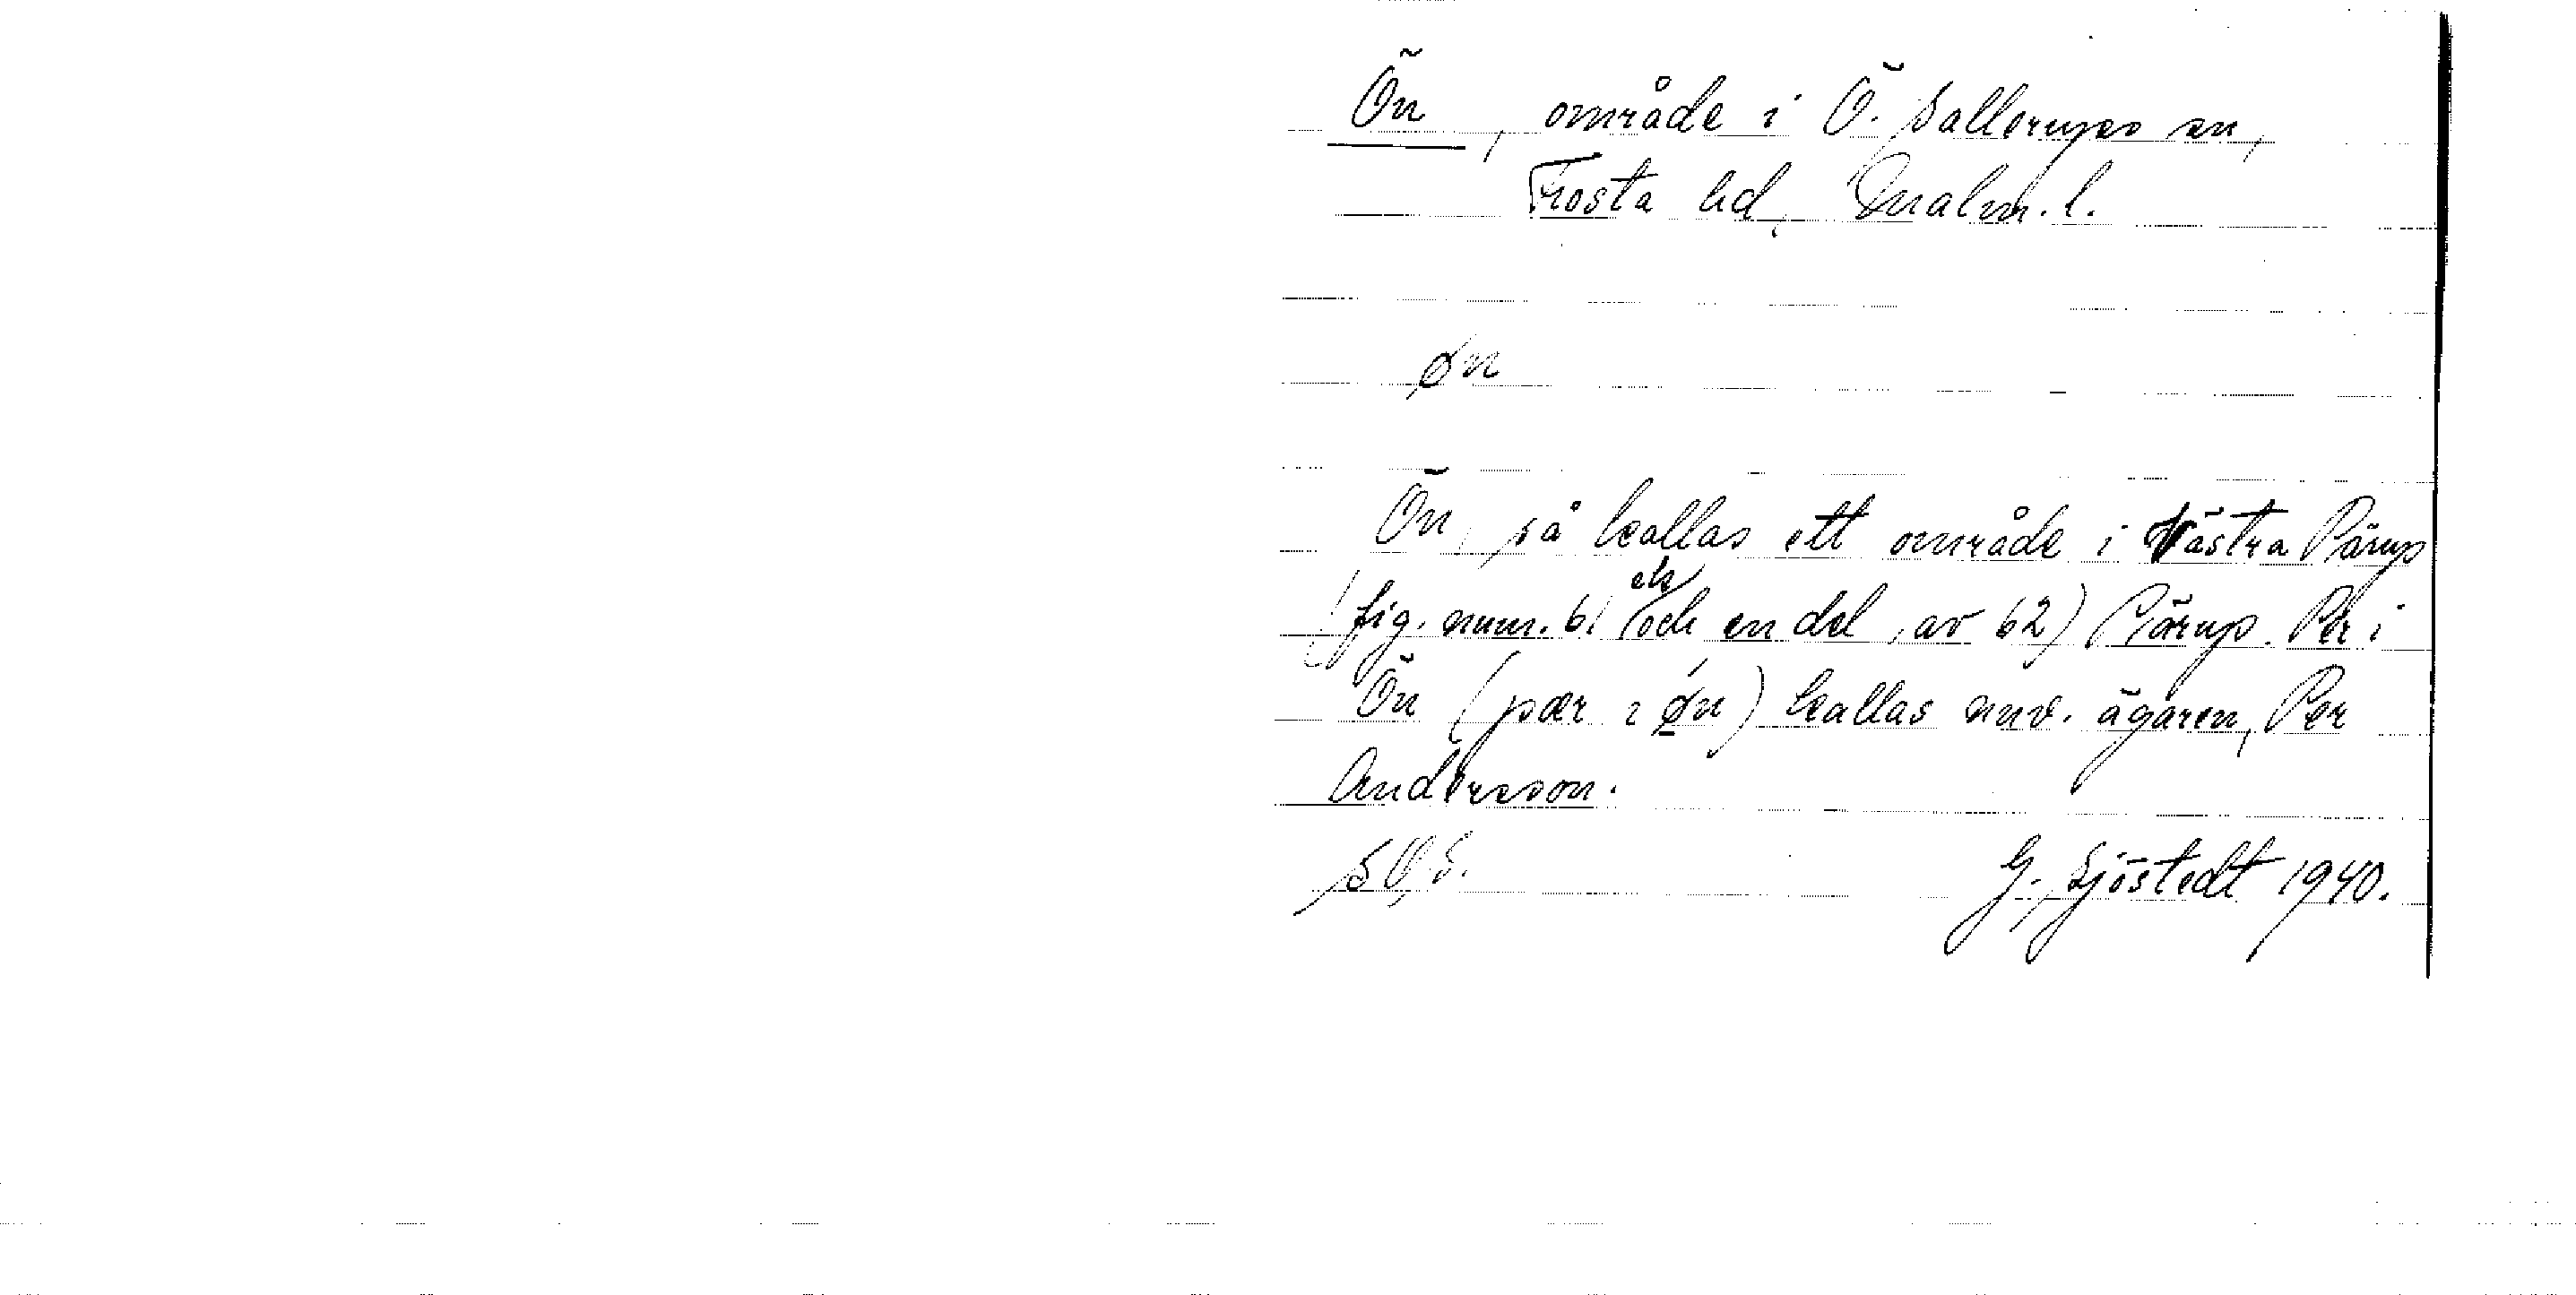 Ön, område i Ö. Sallerups sn,
Frosta hd, Malm. l.
øn
Ön, så kallas ett område i Västra Pärup
(fig. num. 61 och en del av 62) Pärup. Per i
Ön (pær i øn) kallas nuv. ägaren, Per
Andersson.
G. Sjöstedt 1940.